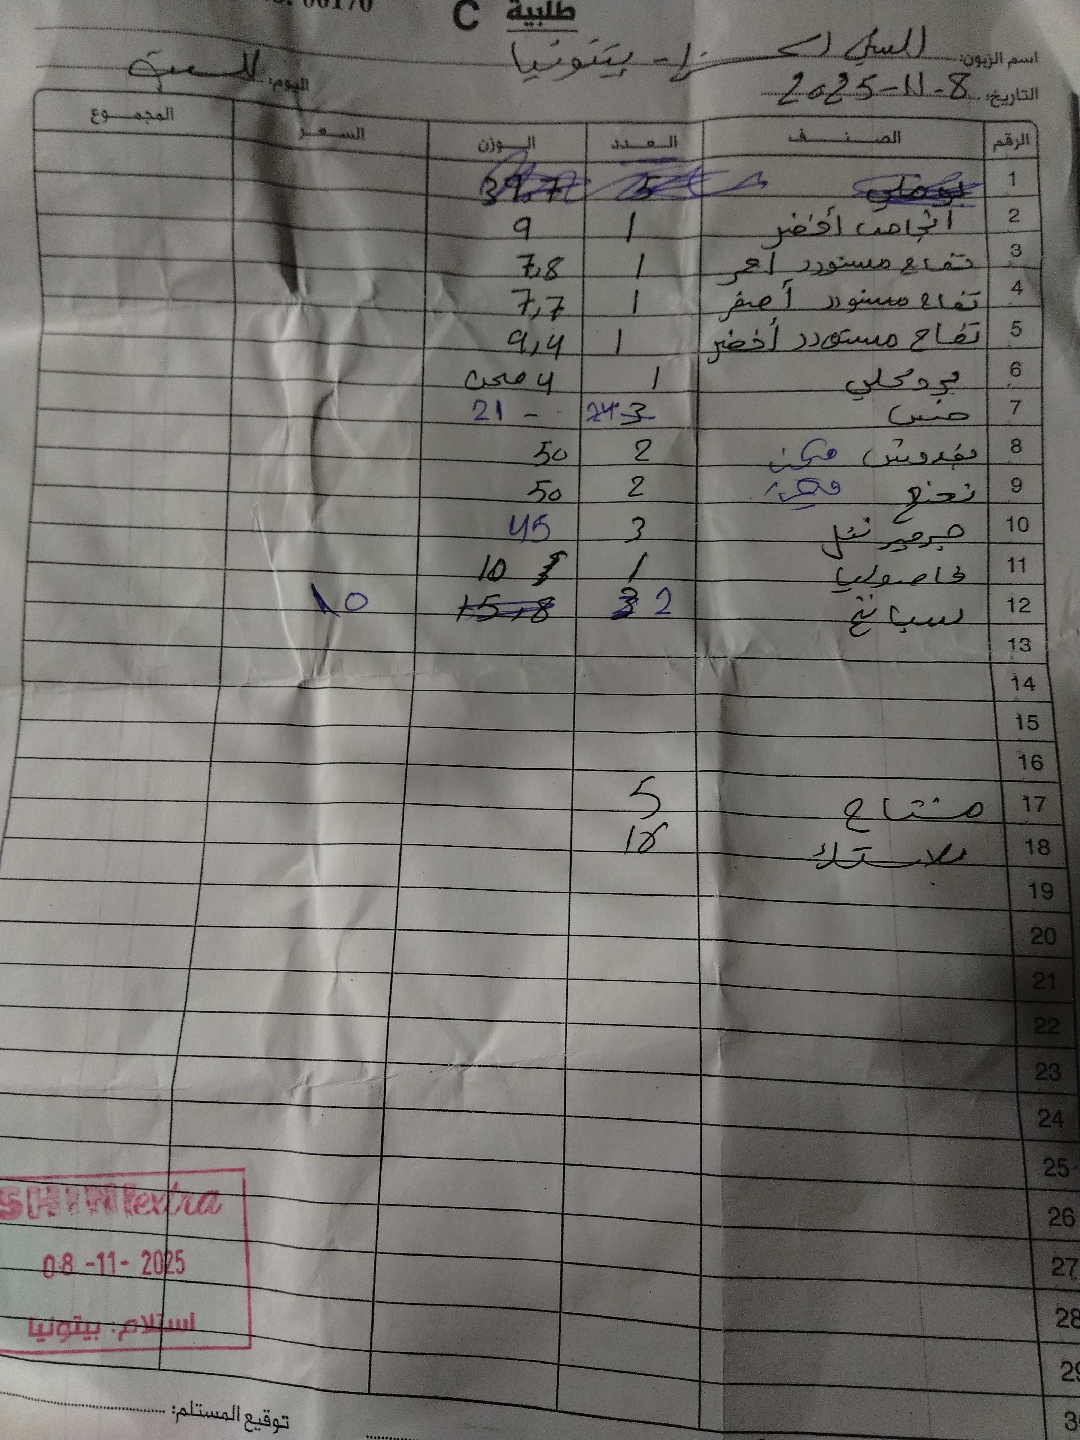 00170
طلبية C
اسم الزبون: بيتونيا
التاريخ: 8-11-2025 اليوم: السبت
الرقم الصنف العدد الوزن السعر المجموع
1 بوملي 5 39,7
2 انجاص أخضر 1 9
3 تفاح مستورد أحمر 1 7,8
4 تفاح مستورد أصفر 1 7,7
5 تفاح مستورد أخضر 1 9,4
6 1 4
7 خس 3 24 21 -
8 بقدونس 2 50
9 نعنع 2 50
10 جرجير نتل 3 45
11 فاصوليا 1 10
12 سبانخ 3 2 15,8 10
13
14
15
16
17 مشتاح 5
18 بلاستك
19
20
21
22
23
24
25
26
27
28
29
SHINI extra
08-11-2025
استلام: بيتونيا
توقيع المستلم: